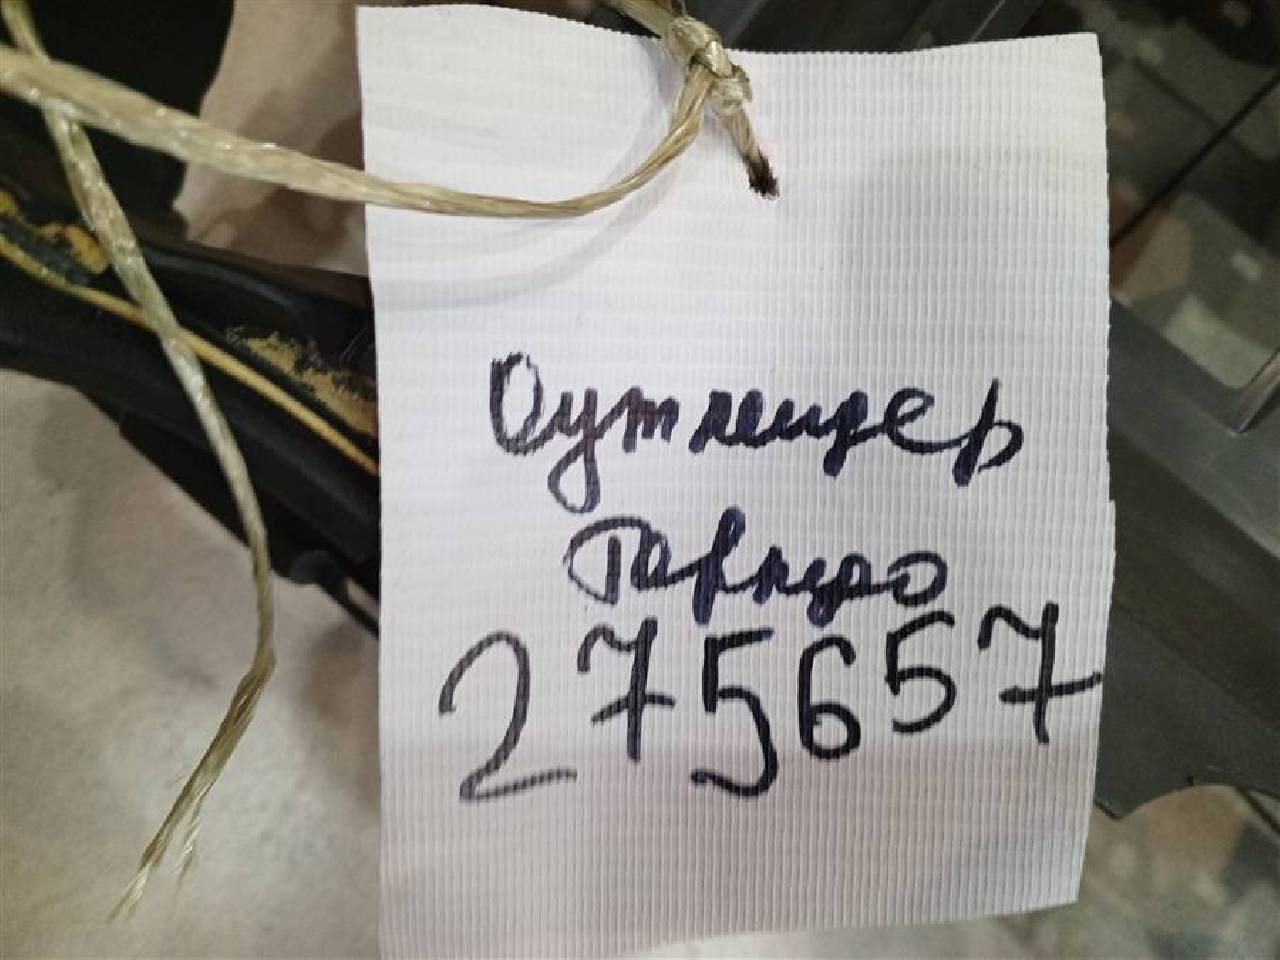 Оутлендер
Торпедо
275657